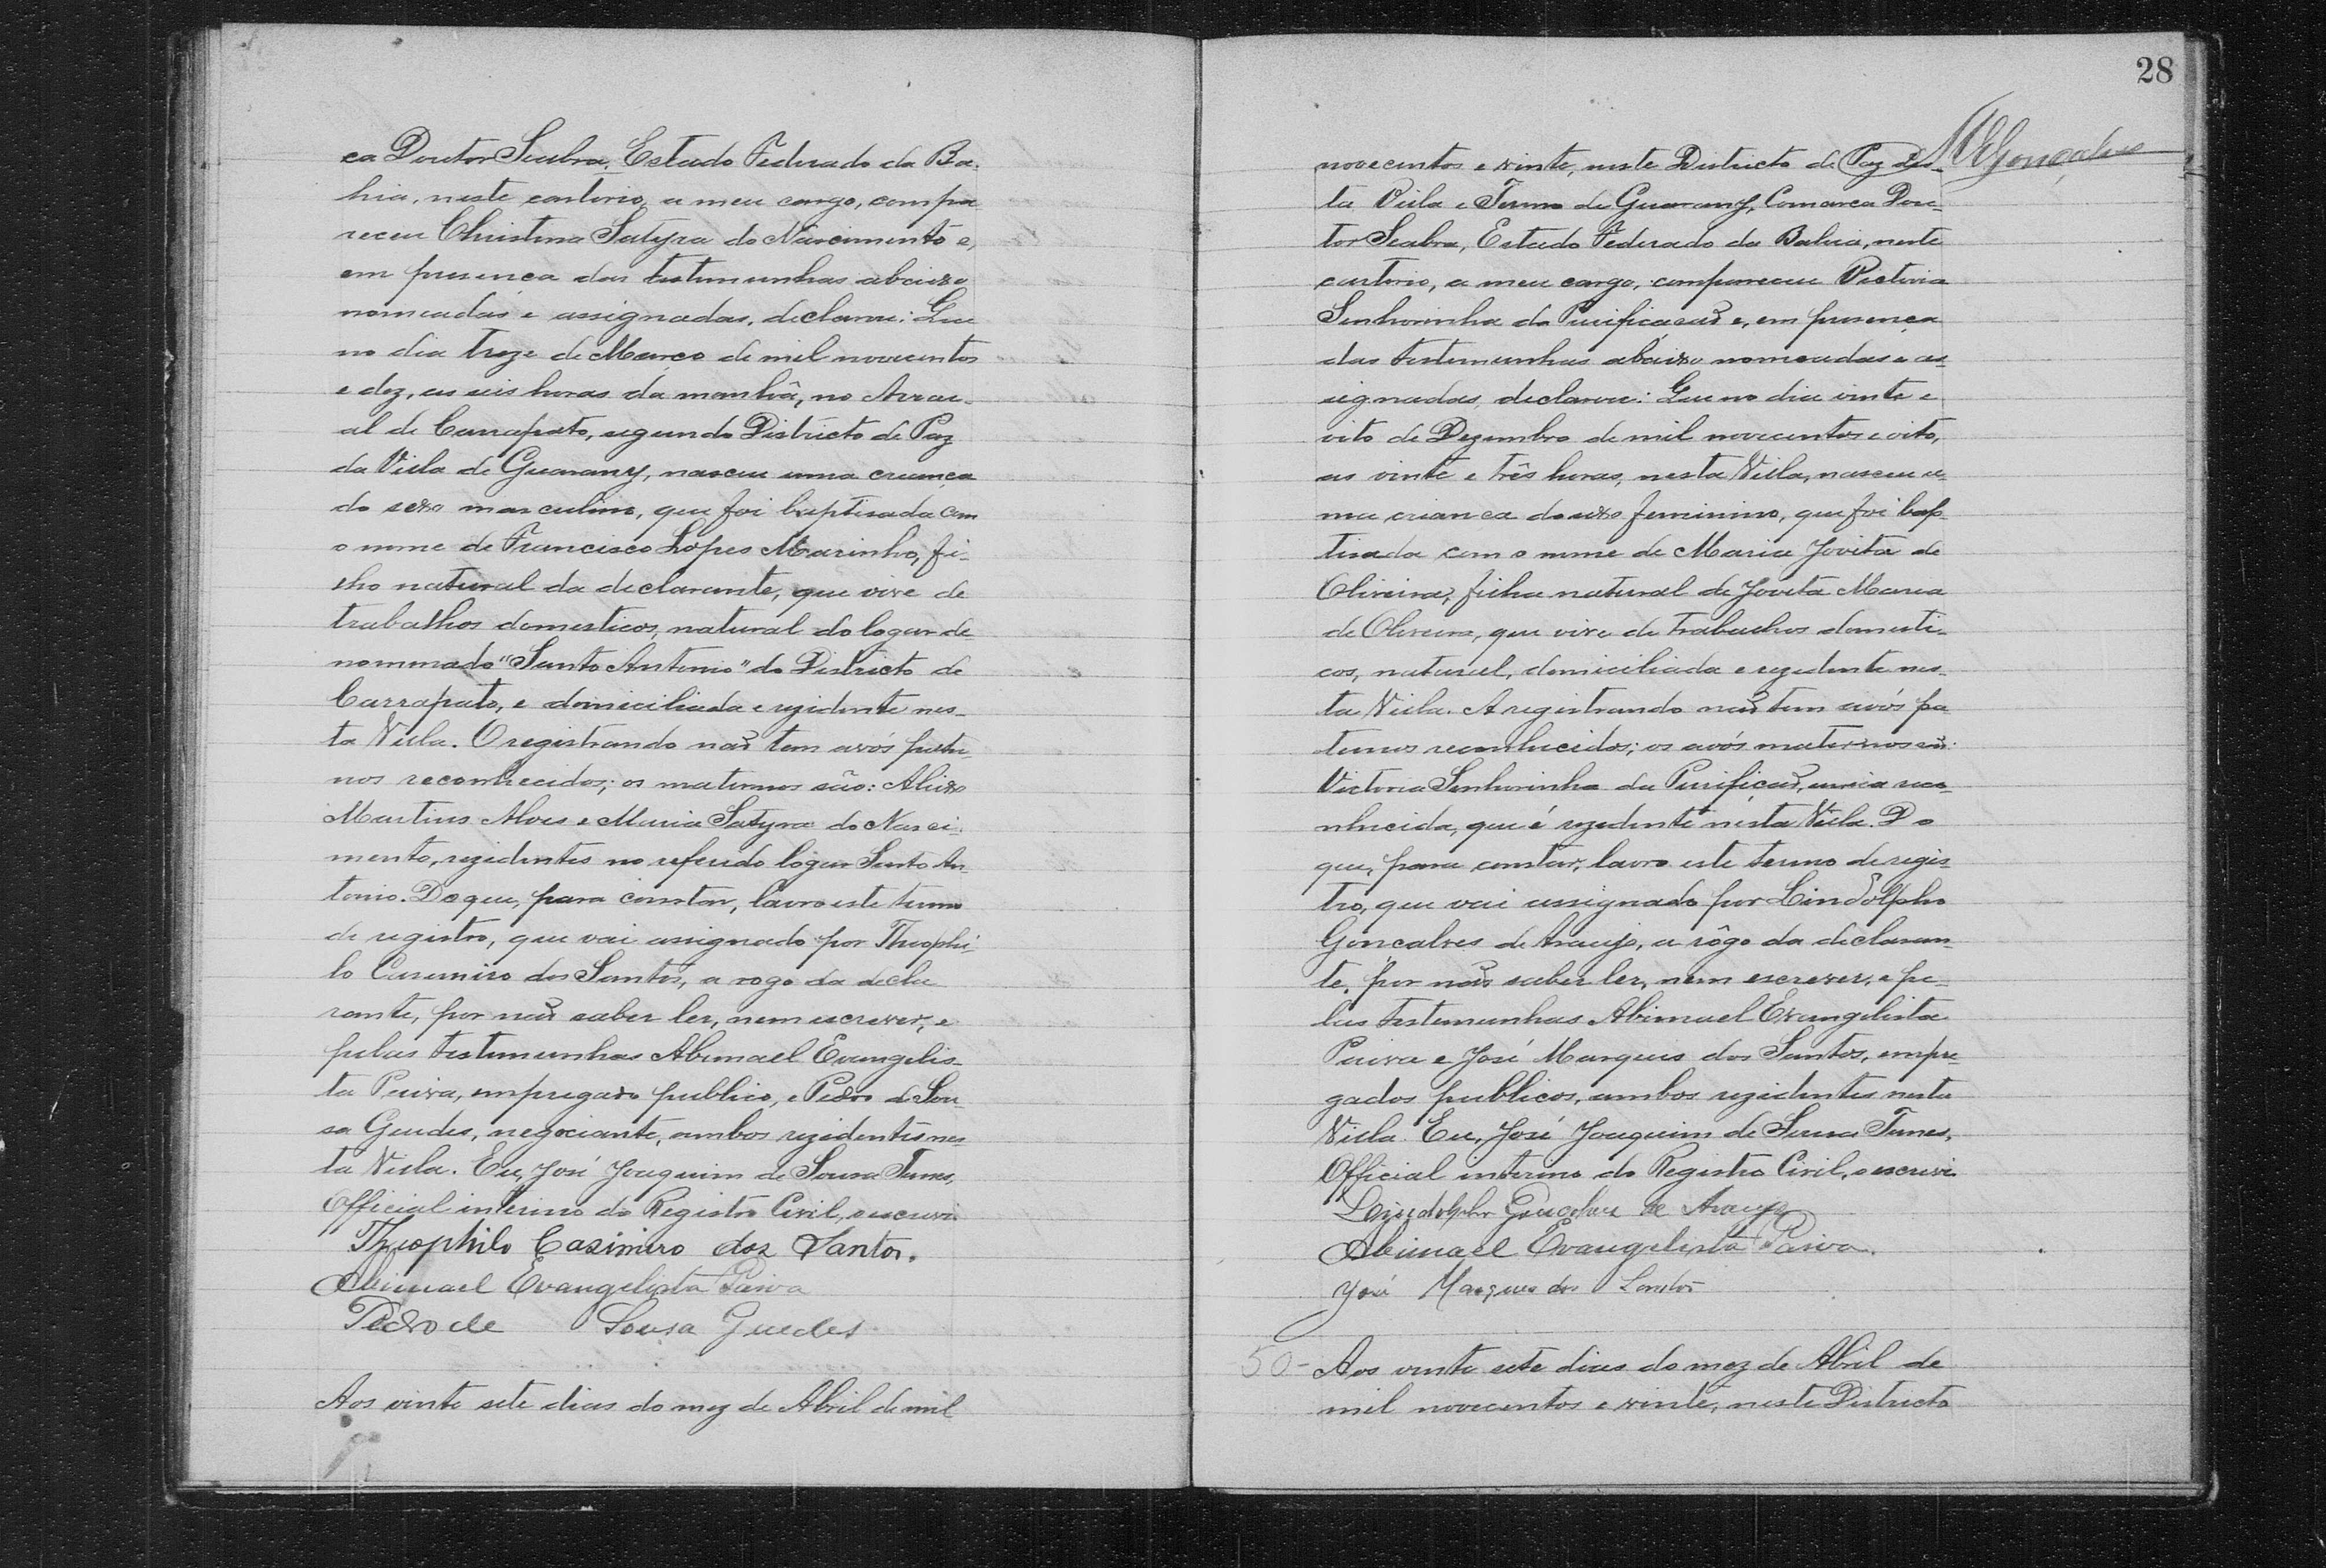 ca Doutor Seabra, Estado Federado da Ba-
hia, neste cartorio, a meu cargo, compa
receu Christina Satyra do Nascimento e,
em presença das testemunhas abaixo
nomeadas e assignadas, declarou: Que
no dia treze de Março de mil novecentos
e dez, as seis horas da manhã, no Arrai-
al de Carrapato, segundo Districto de Paz
da Villa de Guarany, nasceu uma criança
do sexo masculino, que foi baptisada com
o nome de Francisco Lopes Marinho, fi-
lho natural da declarante, que vive de
trabalhos domesticos, natural do logar de
nominado "Santo Antonio" do Districto de
Carrapato, e domiciliada e rezidente nes-
ta Villa. O registrando não tem avós pater
nos reconhecidos; os maternos são: Aleixo
Martins Alves e Maria Satyra do Nasci-
mento, rezidentes no referido logar Santo An-
tonio. Do que, para constar, lavro este termo
de registro, que vai assignado por Theophi-
lo Casemiro dos Santos, a rogo da decla
rante, por não saber ler, nem escrever, e
pelas testemunhas Abimael Evangelis-
ta Paiva, empregado publico, e Pedro de Sou-
sa Guedes, negociante, ambos rezidentes nes
ta Villa. Eu, José Joaquim de Sousa Tunes,
Official interino do Registro Civil, o escrevi.
Theophilo Casimiro dos Santos.
Abimael Evangelista Paiva
Pedro de Sousa Guedes
Aos vinte sete dias do mez de Abril de mil
28
MGonçalves
novecentos e vinte, neste Districto de Paz des-
ta Villa e Termo de Guarany, Comarca Dou-
tor Seabra, Estado Federado da Bahia, neste
cartorio, a meu cargo, compareceu Victoria
Senhorinha da Purificação e, em presença
das testemunhas abaixo nomeadas e as-
signadas, declarou: Que no dia vinte e
oito de Dezembro de mil novecentos e oito,
as vinte e três horas, nesta Villa, nasceu u-
ma criança do sexo feminino, que foi bap-
tisada com o nome de Maria Jovita de
Oliveira, filha natural de Jovita Maria
de Oliveira, que vive de trabalhos domesti-
cos, natural, domiciliada e rezidente nes-
ta Villa. A registrando não tem avós pa
ternos reconhecidos; os avós maternos são:
Victoria Senhorinha da Purificação, unica reco-
nhecida, que é rezidente nésta Villa. Do
que, para constar, lavro este termo de regis
tro, que vai assignado por Lindolpho
Gonçalves de Araujo, a rôgo da declaran-
te, por não saber ler, nem escrever, e pe-
las testemunhas Abimael Evangelista
Paiva e José Marques dos Santos, empre-
gados publicos, ambos rezidentes nesta
Villa. Eu, José Joaquim de Sousa Tunes,
Official interino do Registro Civil, o escrevi.
Lindolpho Gonçalves de Araujo
Abimael Evangelista Paiva.
José Marques dos Santos
50- Aos vinte sete dias do mez de Abril de
mil novecentos e vinte, neste Districto